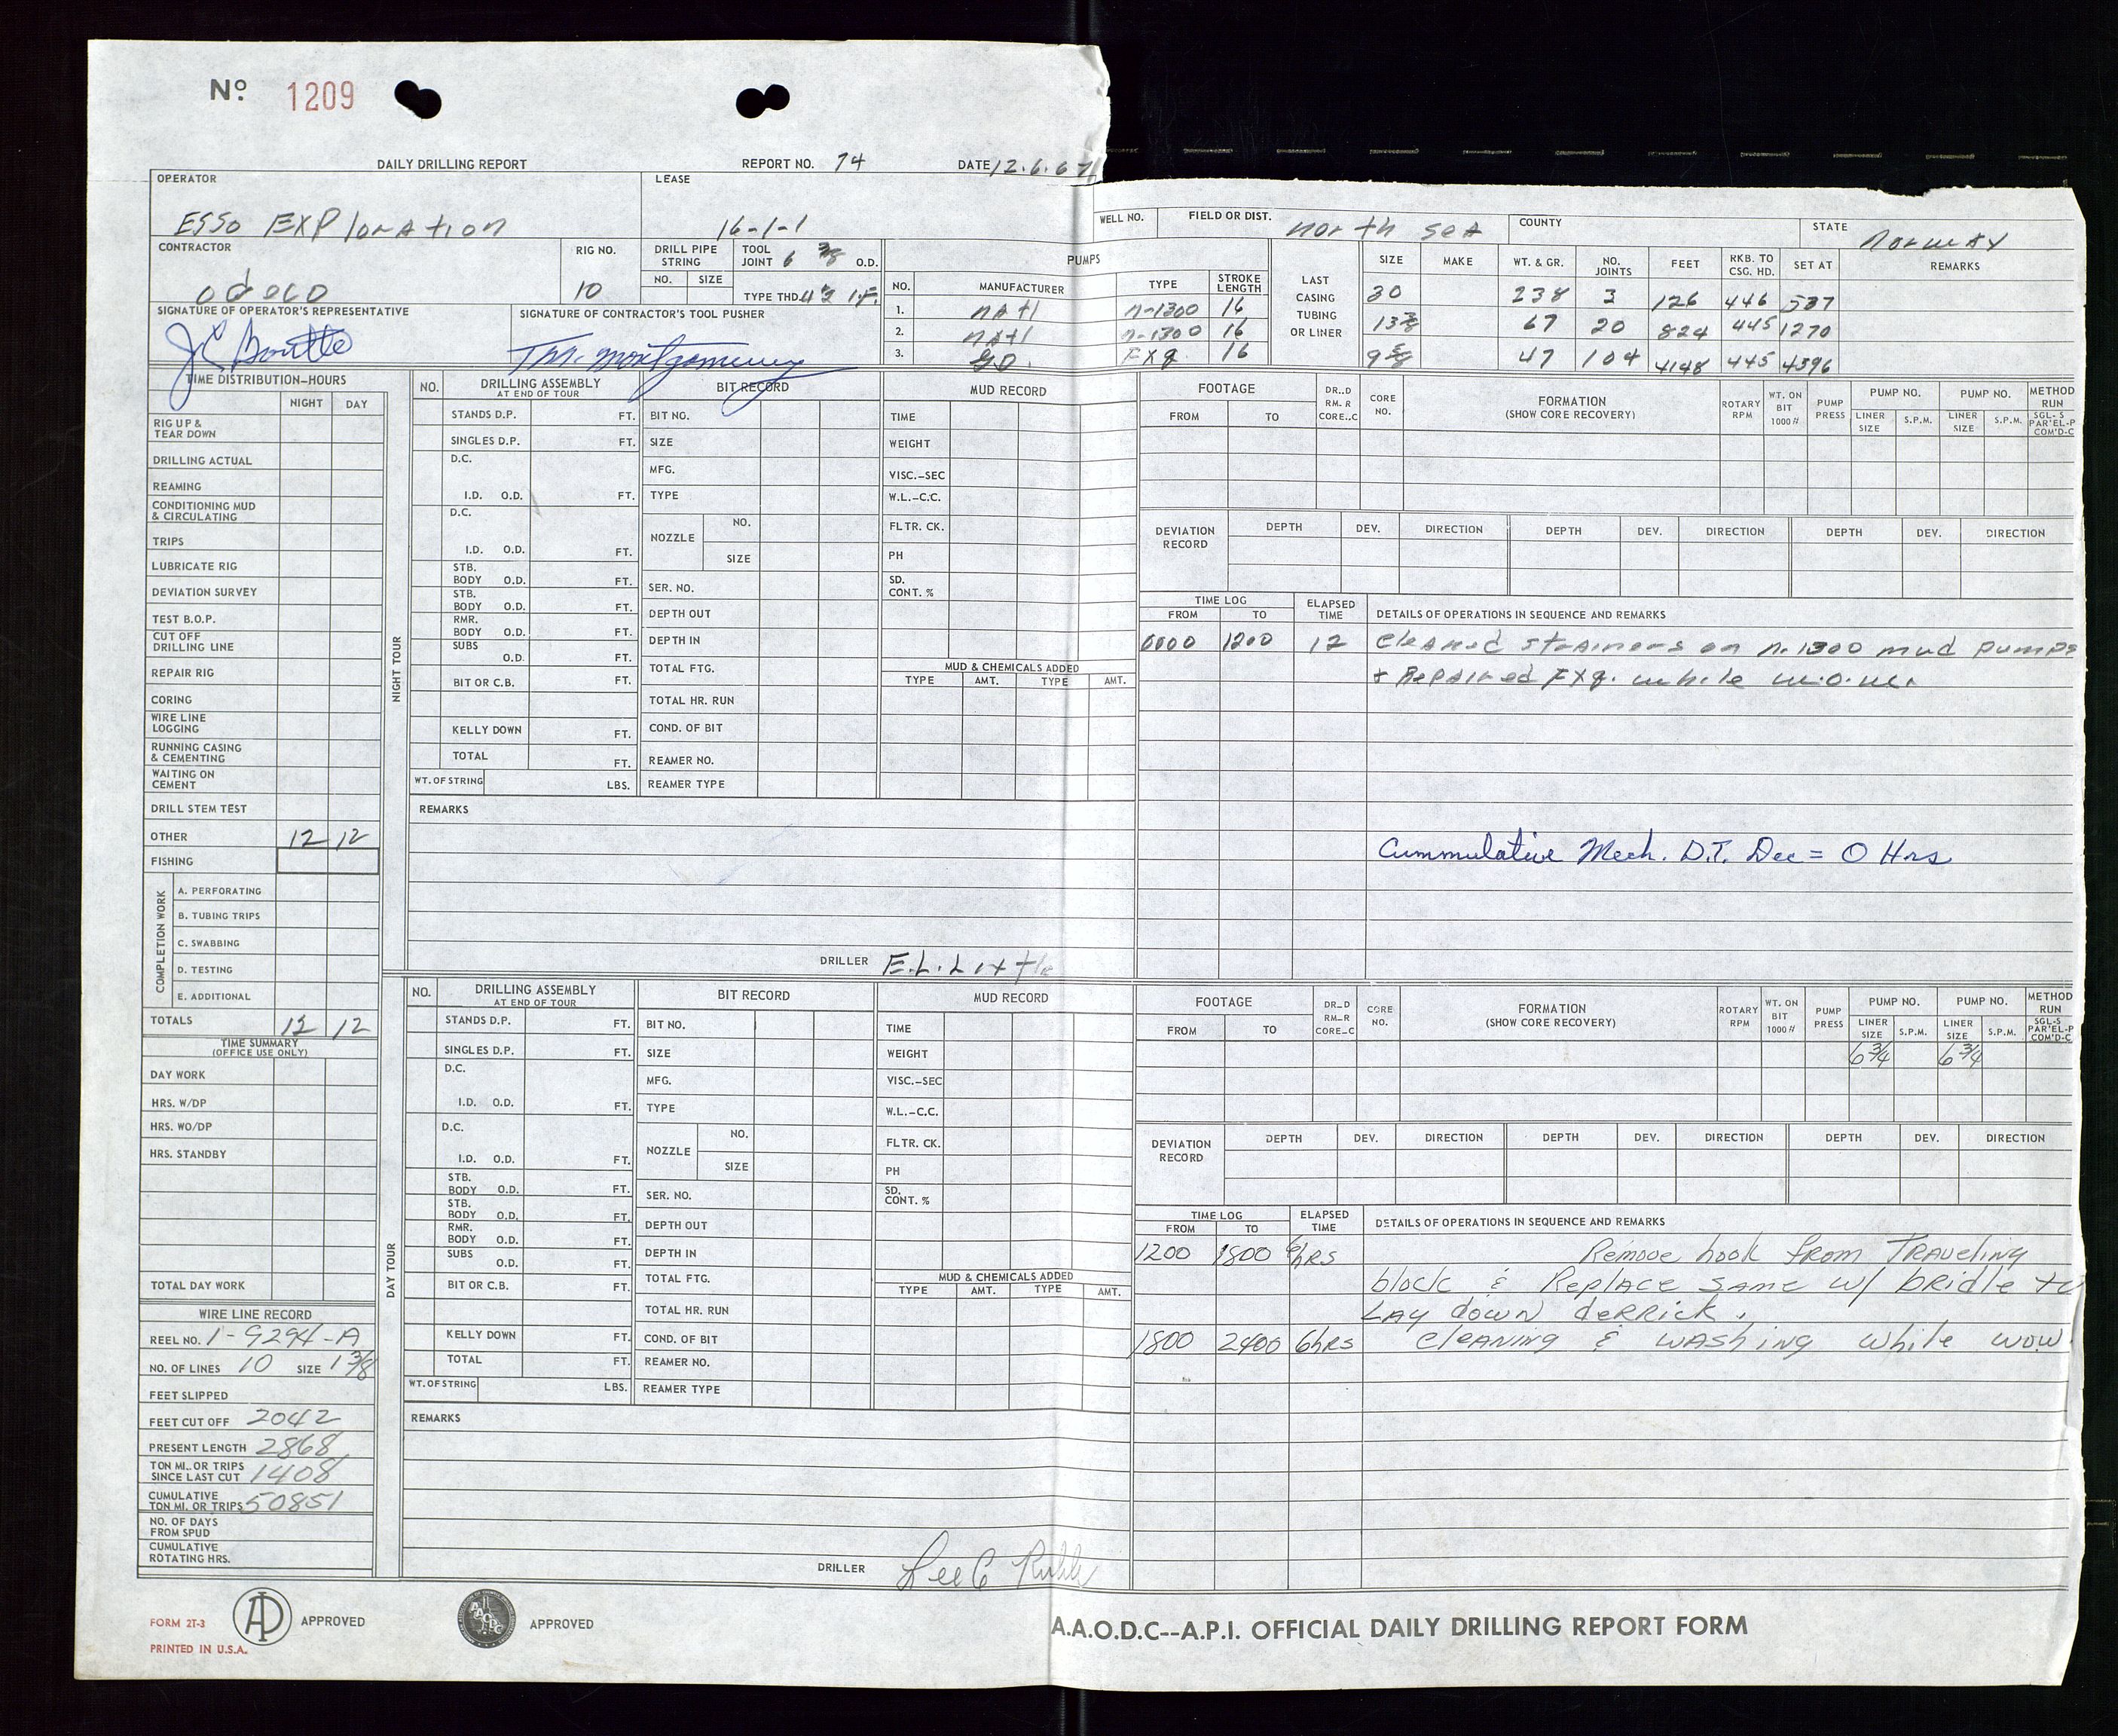 Nº 1209
DAILY DRILLING REPORT REPORT NO. 74 DATE 12.6.67
OPERATOR LEASE
ESSO EXPloration 16-1-1
WELL NO. FIELD OR DIST. north sea COUNTY STATE norway
CONTRACTOR RIG NO. DRILL PIPE STRING TOOL JOINT 6 3/8 O.D. PUMPS
odeco 10 NO. SIZE TYPE THD 4½ I.F.
NO. MANUFACTURER TYPE STROKE LENGTH
1. natl n-1300 16
2. natl n-1300 16
3. GD. FXq. 16
LAST CASING TUBING OR LINER SIZE MAKE WT. & GR. NO. JOINTS FEET RKB. TO CSG. HD. SET AT REMARKS
30 238 3 126 446 537
13 3/8 67 20 824 445 1270
9 5/8 47 104 4148 445 4396
SIGNATURE OF OPERATOR'S REPRESENTATIVE SIGNATURE OF CONTRACTOR'S TOOL PUSHER
T.M. Montgomery
TIME DISTRIBUTION–HOURS
NIGHT DAY
RIG UP & TEAR DOWN
DRILLING ACTUAL
REAMING
CONDITIONING MUD & CIRCULATING
TRIPS
LUBRICATE RIG
DEVIATION SURVEY
TEST B.O.P.
CUT OFF DRILLING LINE
REPAIR RIG
CORING
WIRE LINE LOGGING
RUNNING CASING & CEMENTING
WAITING ON CEMENT
DRILL STEM TEST
OTHER 12 12
FISHING
COMPLETION WORK
A. PERFORATING
B. TUBING TRIPS
C. SWABBING
D. TESTING
E. ADDITIONAL
TOTALS 12 12
TIME SUMMARY
(OFFICE USE ONLY)
DAY WORK
HRS. W/DP
HRS. WO/DP
HRS. STANDBY
TOTAL DAY WORK
WIRE LINE RECORD
REEL NO. 1-9294-A
NO. OF LINES 10 SIZE 1 3/8
FEET SLIPPED
FEET CUT OFF 2042
PRESENT LENGTH 2868
TON MI. OR TRIPS SINCE LAST CUT 1408
CUMULATIVE TON MI. OR TRIPS 50851
NO. OF DAYS FROM SPUD
CUMULATIVE ROTATING HRS.
NIGHT TOUR
NO. DRILLING ASSEMBLY AT END OF TOUR BIT RECORD MUD RECORD
STANDS D.P. FT. BIT NO. TIME
SINGLES D.P. FT. SIZE WEIGHT
D.C. MFG. VISC.–SEC
I.D. O.D. FT. TYPE W.L.–C.C.
D.C. NOZZLE NO. FLTR. CK.
I.D. O.D. FT. SIZE PH
STB. BODY O.D. FT. SER. NO. SD. CONT. %
STB. BODY O.D. FT. DEPTH OUT
RMR. BODY O.D. FT. DEPTH IN
SUBS O.D. FT. TOTAL FTG. MUD & CHEMICALS ADDED
BIT OR C.B. FT. TOTAL HR. RUN TYPE AMT. TYPE AMT.
KELLY DOWN FT. COND. OF BIT
TOTAL FT. REAMER NO.
WT. OF STRING LBS. REAMER TYPE
REMARKS
DRILLER E.L. Little
FOOTAGE DR..D RM. R CORE..C CORE NO. FORMATION (SHOW CORE RECOVERY) ROTARY RPM WT. ON BIT 1000# PUMP PRESS PUMP NO. PUMP NO. METHOD RUN
FROM TO LINER SIZE S.P.M. LINER SIZE S.P.M. SGL-S PAR'EL-P COM'D-C
DEVIATION RECORD DEPTH DEV. DIRECTION DEPTH DEV. DIRECTION DEPTH DEV. DIRECTION
TIME LOG ELAPSED TIME DETAILS OF OPERATIONS IN SEQUENCE AND REMARKS
FROM TO
0000 1200 12 cleaned strainers on n.1300 mud pumps
+ Repaired FXq. while w.o.w.
Cummulative Mech. D.T. Dec = 0 Hrs
DAY TOUR
NO. DRILLING ASSEMBLY AT END OF TOUR BIT RECORD MUD RECORD
STANDS D.P. FT. BIT NO. TIME
SINGLES D.P. FT. SIZE WEIGHT
D.C. MFG. VISC.–SEC
I.D. O.D. FT. TYPE W.L.–C.C.
D.C. NOZZLE NO. FLTR. CK.
I.D. O.D. FT. SIZE PH
STB. BODY O.D. FT. SER. NO. SD. CONT. %
STB. BODY O.D. FT. DEPTH OUT
RMR. BODY O.D. FT. DEPTH IN
SUBS O.D. TOTAL FTG. MUD & CHEMICALS ADDED
BIT OR C.B. FT. TOTAL HR. RUN TYPE AMT. TYPE AMT.
KELLY DOWN FT. COND. OF BIT
TOTAL FT. REAMER NO.
WT. OF STRING LBS. REAMER TYPE
REMARKS
DRILLER Lee C
FOOTAGE DR_D RM_R CORE-C CORE NO. FORMATION (SHOW CORE RECOVERY) ROTARY RPM WT. ON BIT 1000# PUMP PRESS PUMP NO. PUMP NO. METHOD RUN
FROM TO LINER SIZE S.P.M. LINER SIZE S.P.M. SGL-S PAR'EL-P COM'D-C
6 3/4 6 3/4
DEVIATION RECORD DEPTH DEV. DIRECTION DEPTH DEV. DIRECTION DEPTH DEV. DIRECTION
TIME LOG ELAPSED TIME DETAILS OF OPERATIONS IN SEQUENCE AND REMARKS
FROM TO
1200 1800 6hRS Remove hook from TRAveling
block & Replace same w/ bridle to
LAY down derrick.
1800 2400 6hRS cleaning & washing while wow.
FORM 2T-3
PRINTED IN U.S.A.
API APPROVED AAODC APPROVED
A.A.O.D.C--A.P.I. OFFICIAL DAILY DRILLING REPORT FORM